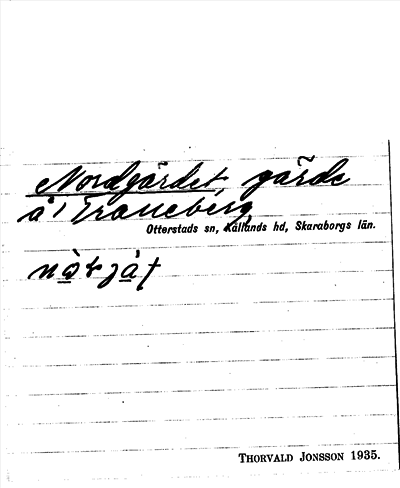 Nordgärdet, gärde
å Traneberg
Otterstads sn, Kållands hd, Skaraborgs län.
THORVALD JONSSON 1935.